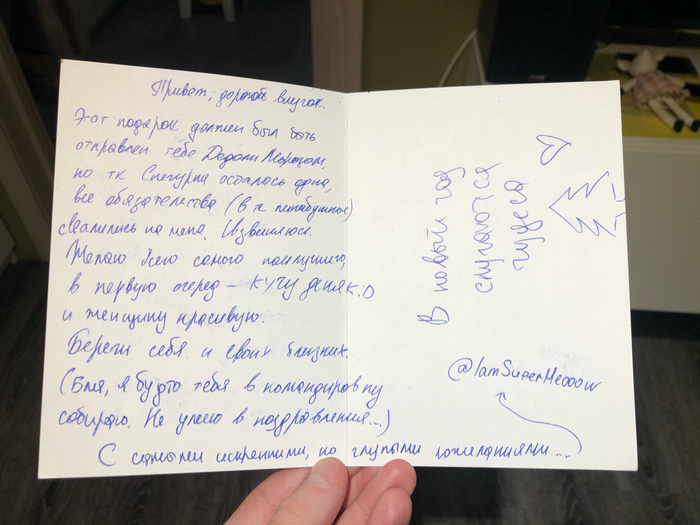 Привет, дорогой внучок.
Этот подарок должен был быть
отправлен тебе Дедом Морозом,
но тк Снегурка осталась одна,
все обязательства (в тч
свалились на меня. Извиняюсь.
Желаю всего самого наилучшего,
в первую очередь – КУЧУ ДЕНЯК:D
и женщину красивую.
Береги себя и своих близких.
(Бля, я будто тебя в командировку
собираю. Не умею в поздравления...)
С самыми искренними, но глупыми пожеланиями...
В новый год
случаются
чудеса
@IamSuperMeooow